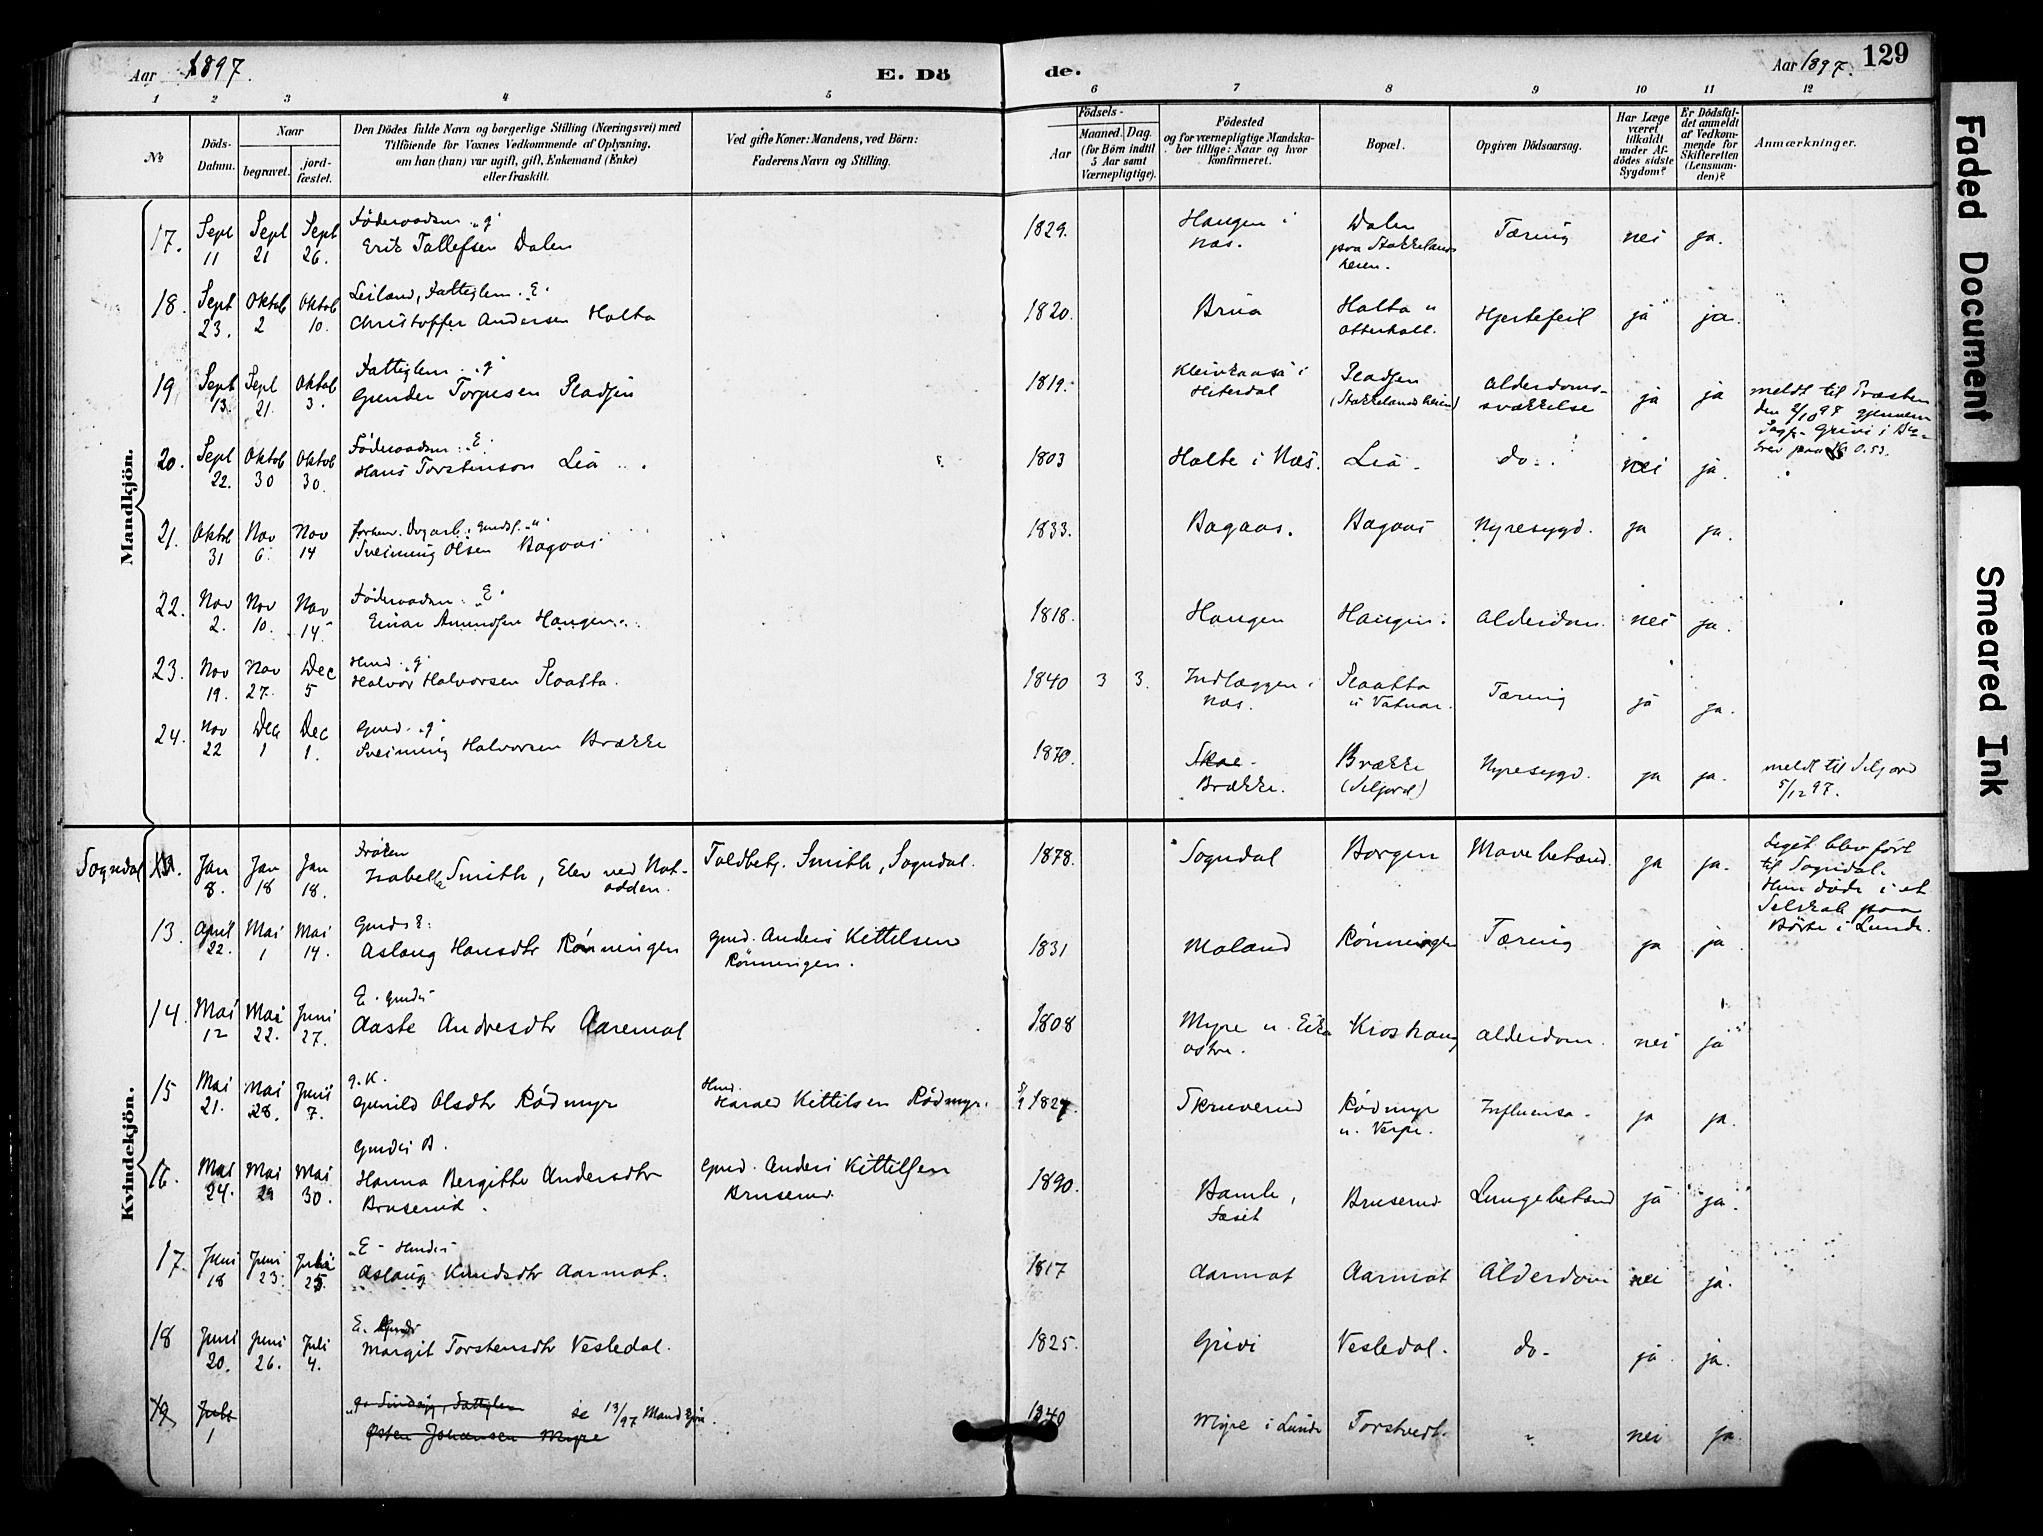 Aar 1897.
E. Döde.
Aar 1897.
129
1 2 3 4 5 6 7 8 9 10 11 12
No
Döds-Datum.
Naar
begravet.
jordfæstet.
Den Dödes fulde Navn og borgerlige Stilling (Næringsvei) med
Tilföiende for Voxnes Vedkommende af Oplysning,
om han (hun) var ugift, gift, Enkemand (Enke)
eller fraskilt.
Ved gifte Koner: Mandens, ved Börn:
Faderens Navn og Stilling.
Födsels-
Aar
Maaned. Dag.
(for Börn indtil
5 Aar samt
Værnepligtige).
Födested
og for værnepligtige Mandskaber
tillige: Naar og hvor
konfirmeret.
Bopæl.
Opgiven Dödsaarsag.
Har Læge
været
tilkaldt
under Afdödes
sidste
Sygdom?
Er Dödsfaldet
anmeldt
af Vedkommende
for
Skifteretten
(Lensmanden)?
Anmærkninger.
Mandkjön.
17. Sept 11 Sept 21 Sept 26. Föderaadsm. "g"
Erik Tallefsen Dalen 1829. Haugen i Næs. Dalen paa Stakkelandsheien. Tæring nei ja.
18. Sept 23. Oktob 2 Oktob 10. Leilænd, Fattiglem. E.
Christoffer Andersen Holta 1820. Brua Holta u Otterholt. Hjertefeil ja ja.
19. Sept 13. Sept 21. Oktob 3. Fattiglem. "g"
Gunder Torjusen Pladsen 1819. Kleivkaasa i Hiterdal Pladsen (Stakkelandsheien) Alderdomssvækkelse ja ja meldt til Præsten
20. Sept 22. Oktob 30 Oktob 30. Föderaadsm: E.
Hans Torstenson Lia 1803 Holte i Næs. Lia. do. nei ja.
21. Oktob 31 Nov 6. Nov 14
Sveinung Olsen Bagaas 1833. Bagaas. Bagaas Nyresygd. ja ja.
22. Nov 2. Nov 10. Nov 14. Föderaadsm: "E"
Einar Amundsen Haugen 1818. Haugen Haugen. Alderdom. nei ja.
23. Nov 19. Nov 27. Dec 5 Hmd. "g"
Halvor Halvorsen Slaatta. 1840 3 3. Indlæggen i Næs. Slaatta u Vatnar. Tæring ja ja.
24. Nov 22 Dec 1 Dec 1. Gmd. "g"
Sveinung Halvorsen Brække 1870. Brække. Brække (Seljord) Nyresygd. ja ja. meldt til Seljord 5/12 97.
Kvindekjön.
Sogndal Jan 8. Jan 18 Jan 18. Fröken
Isabella Smith, Elev ved Notodden. Toldbetj. Smith, Sogndal. 1878. Sogndal Borgen Mavebetænd. ja ja. Liget blev fört
til Sogndal.
Hun döde i et
Selskab paa
Börte i Lunde.
13. April 22. Mai 1 Mai 14. Gmds E.
Aslaug Hansdtr Rönningen Gmd. Anders Kittilsen Rönningen. 1831 Moland Rönningen Tæring ja ja
14. Mai 12 Mai 22. Juni 27. E. Gmds
Aaste Andresdtr Aaremot 1808 Myre u. Eika ostre. Kroshaug Alderdom. nei ja
15 Mai 21. Mai 28. Juni 7. g. K.
Gunild Olsdtr Rödmyr Hmd. Harald Kittilsen Rödmyr. 1827. Skruverud Rödmyr u. Verpe. Influensa. ja ja.
16. Mai 24. Mai 29 Mai 30. Gmds B.
Hanna Bergitte Andersdtr
Bruserud. Gmd. Anders Kittilsen Bruserud. 1890. Bamle, Bruserud Lungebetænd ja ja.
17. Juni 18 Juni 23. Juli 25. "E" Hmds
Aslaug Knudsdtr Aarmot. 1817 Aarmot Aarmot Alderdom nei ja.
18 Juni 20. Juni 26. Juli 4. E. Gmds
Margit Torstensdtr Vesledal. 1825. Grivi Vesledal. do. ja ja.
19 Juli 1 Fattiglem
Østen Johansen Myre se 13/97 Mandkjön. 1840 Myre i Lunde Torstvedt. " nei ja.
Faded Document
Smeared Ink